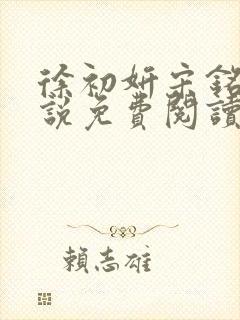 徐初妍宋銘
說免費閱讀
賴志雄